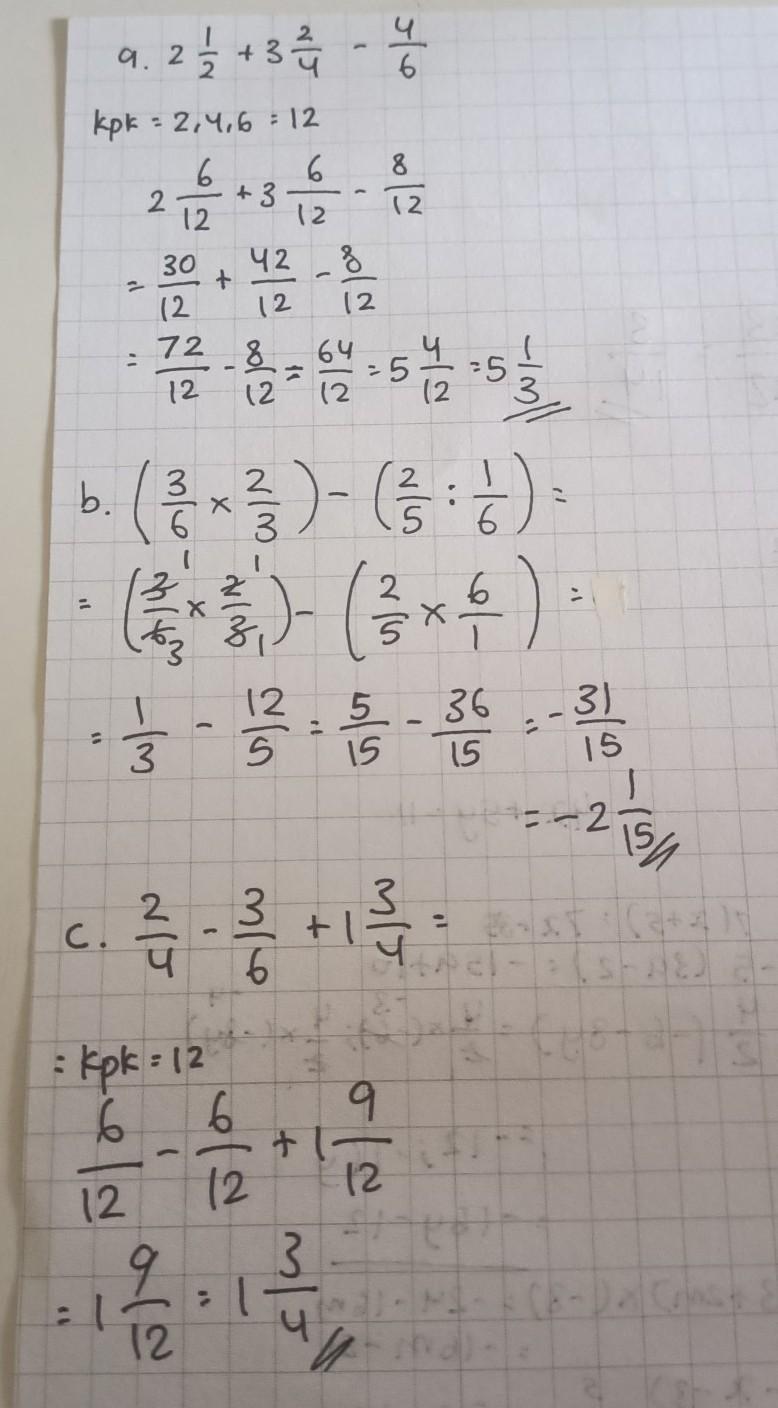 a. 2 1/2 + 3 2/4 - 4/6
kpk = 2,4,6 = 12
2 6/12 + 3 6/12 - 8/12
= 30/12 + 42/12 - 8/12
= 72/12 - 8/12 = 64/12 = 5 4/12 = 5 1/3
b. (3/6 × 2/3) - (2/5 : 1/6) =
= (3/6 1/3 × 2/3 1/1) - (2/5 × 6/1) =
= 1/3 - 12/5 = 5/15 - 36/15 = - 31/15
= - 2 1/15
c. 2/4 - 3/6 + 1 3/4 =
= kpk = 12
6/12 - 6/12 + 1 9/12
= 1 9/12 = 1 3/4